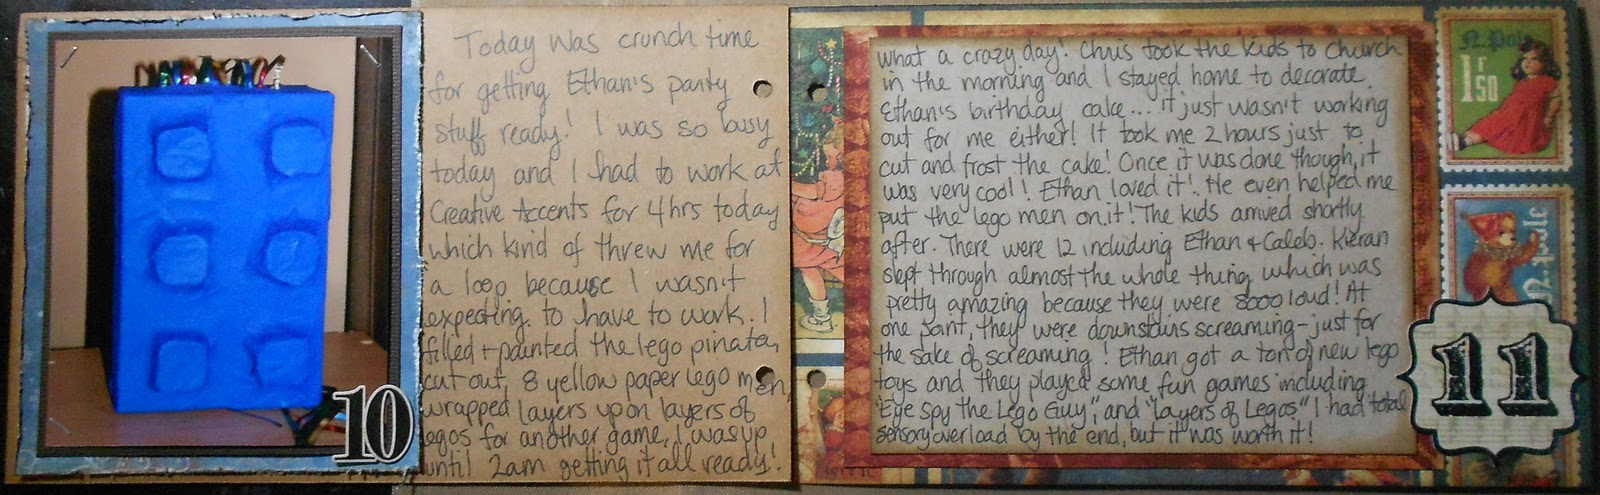 Today was crunch time
for getting Ethan's party
stuff ready! I was so busy
today and I had to work at
Creative Accents for 4hrs today
which kind of threw me for
a loop because I wasn't
expecting to have to work. I
filled + painted the lego pinata,
cut out 8 yellow paper lego men,
wrapped layers upon layers of
legos for another game, I was up
until 2am getting it all ready!
10
What a crazy day! Chris took the kids to church
in the morning and I stayed home to decorate
Ethan's birthday cake... it just wasn't working
out for me either! It took me 2 hours just to
cut and frost the cake! Once it was done though, it
was very cool! Ethan loved it! He even helped me
put the lego men on it! The kids arrived shortly
after. There were 12 including Ethan + Caleb. Kieran
slept through almost the whole thing which was
pretty amazing because they were sooo loud! At
one point, they were downstairs screaming - just for
the sake of screaming! Ethan got a ton of new lego
toys and they played some fun games including
"Eye Spy the Lego Guy", and "Layers of Legos." I had total
sensory overload by the end, but it was worth it!
N. Pole
1 F 50
N. Pole
11